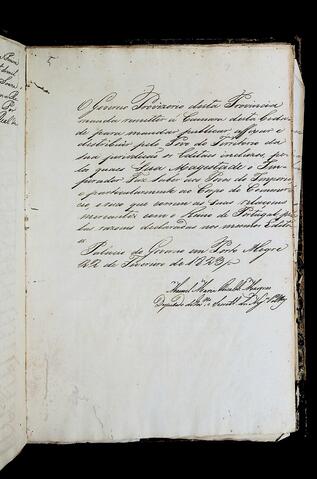 5
O Governo Provizorio desta Provincia
manda remetter á Camara desta Cida-
de para mandar publicar affixar e
distribuir pelo Povo do Territorio da
sua jurisdicção os Editaes incluzos, pe-
los quaes Sua Magestade o Im-
perador Faz saber aos Povos do Imperio
e particularmente ao Corpo do Commer-
cio o risco que correm as suas relaçoens
mercantiz com o Reino de Portugal pe-
las razoens declaradas nos mesmos Edita-
es. Palacio do Governo em Porto Alegre
22 de Fevereiro de 1823
Manoel Maria Ricalde Marques
Deputado